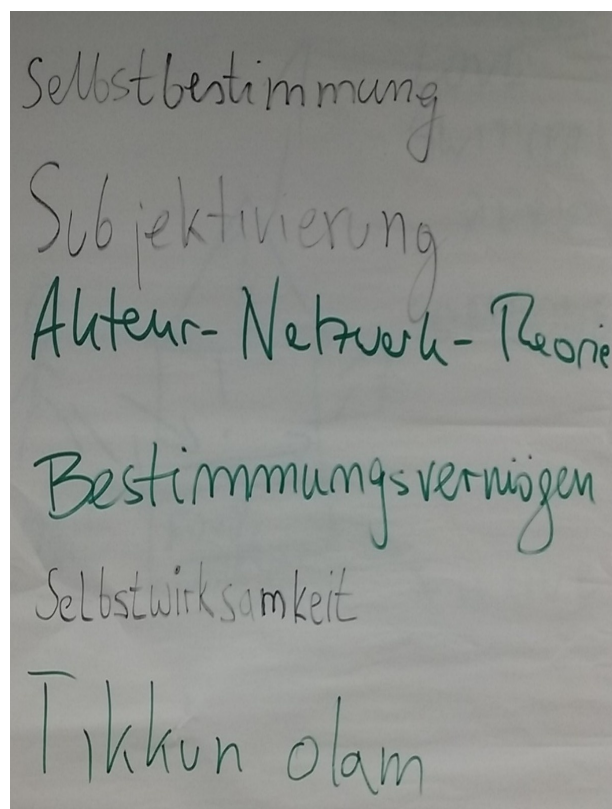 Selbstbestimmung
Subjektivierung
Akteur-Netzwerk-Theorie
Bestimmungsvermögen
Selbstwirksamkeit
Tikkun olam